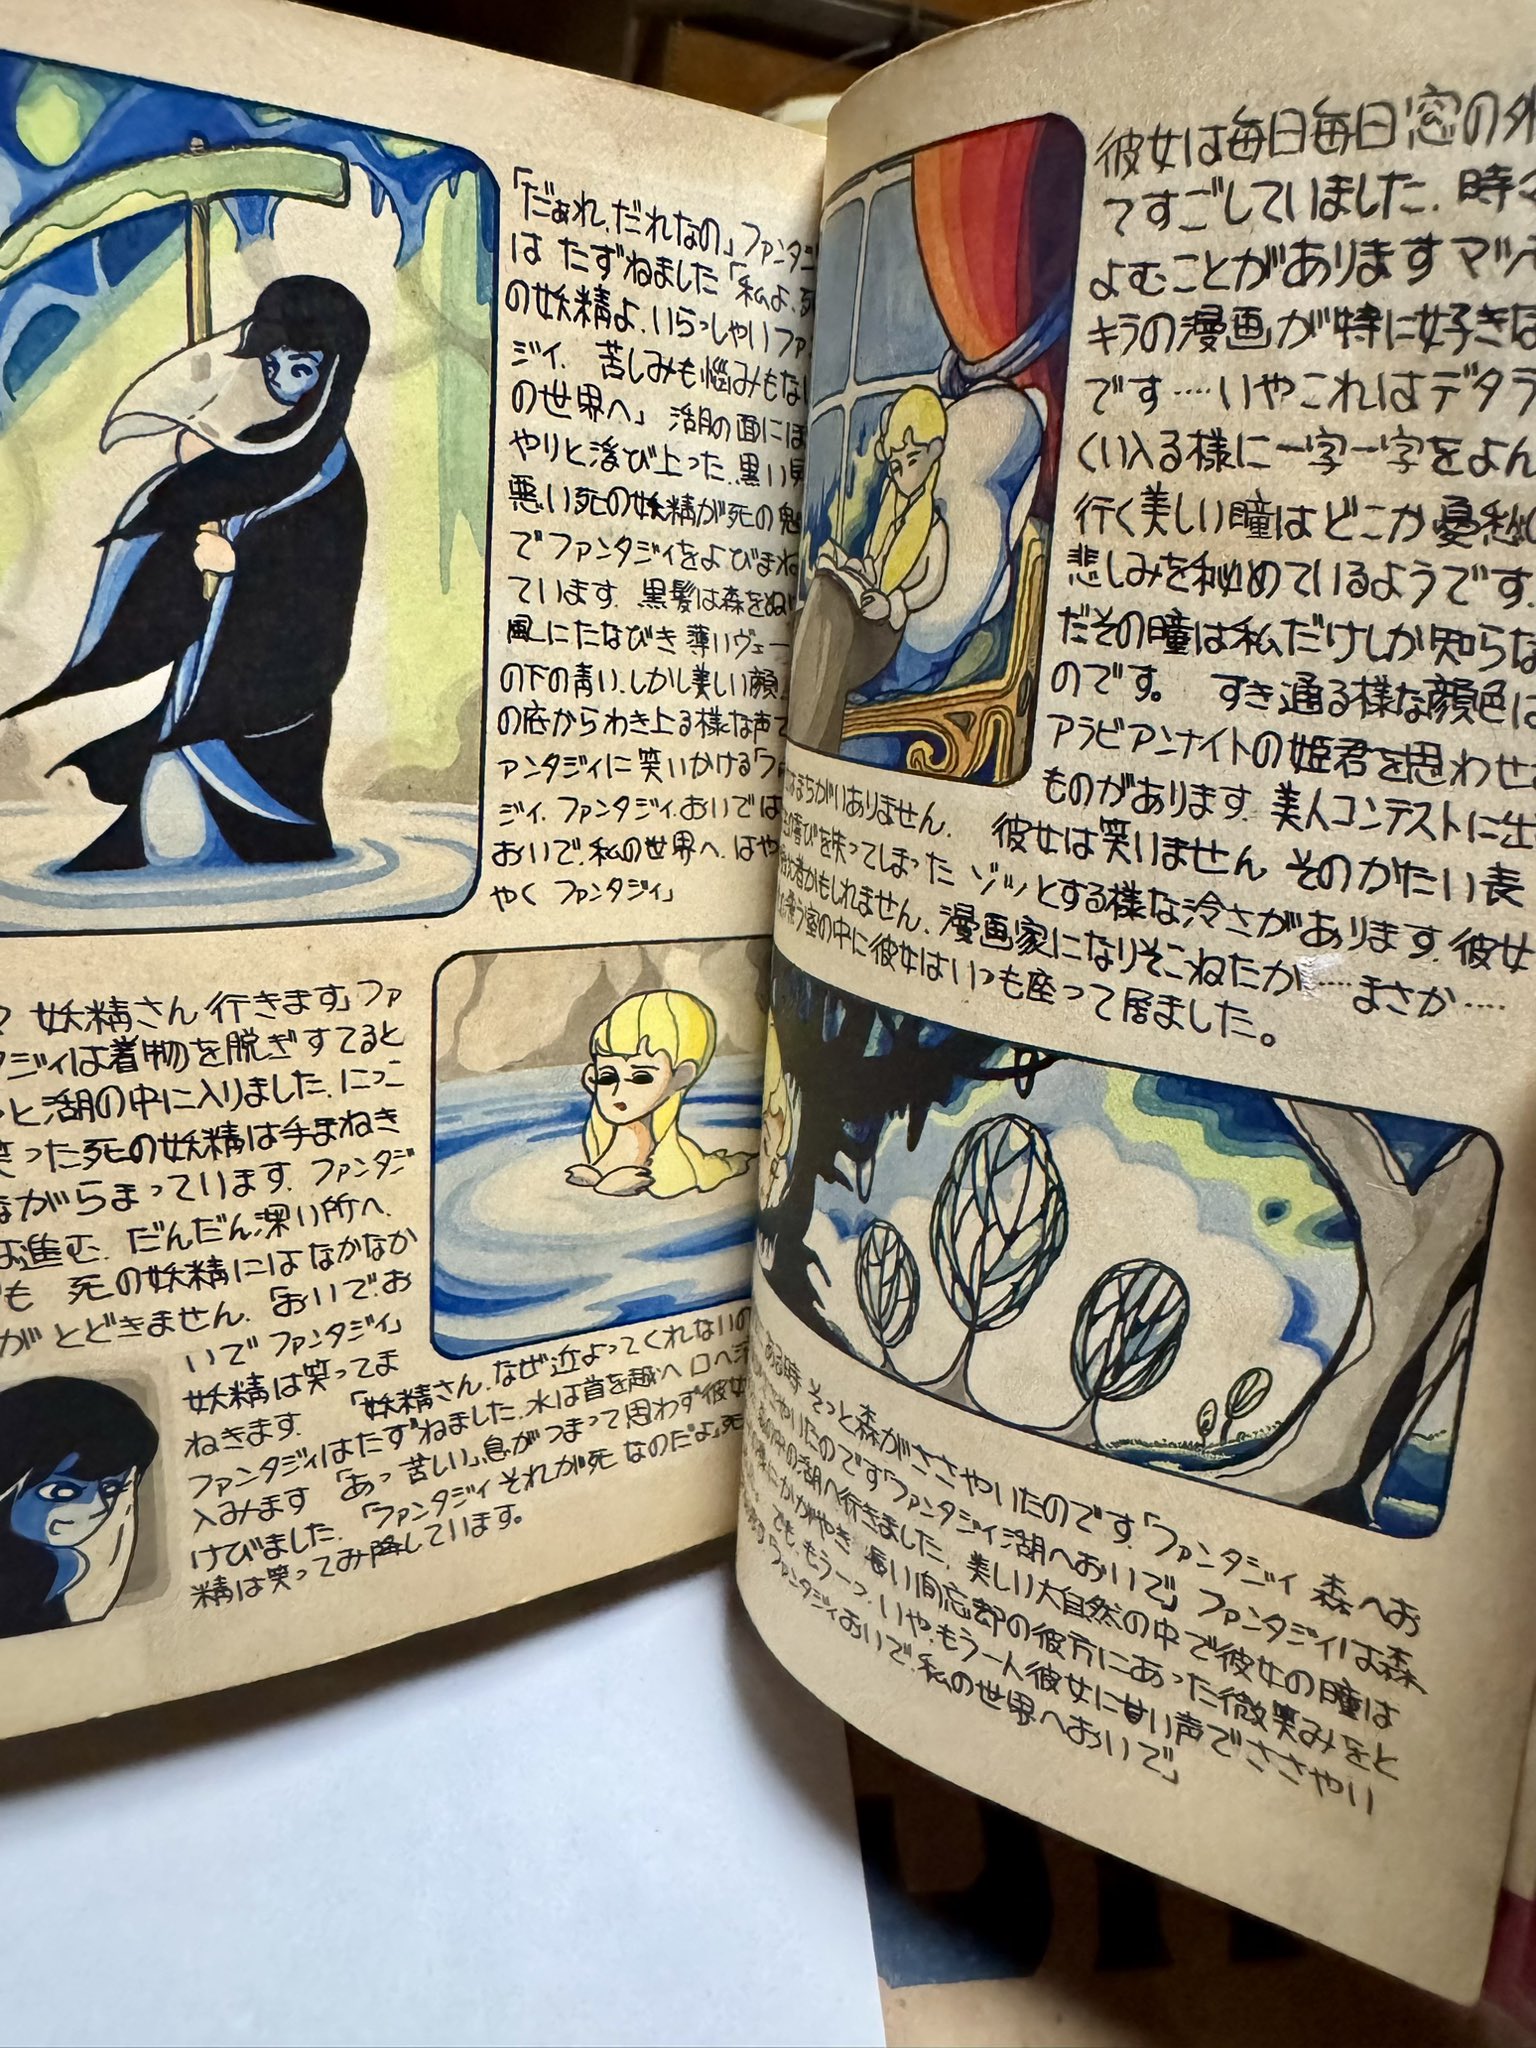 「だぁれ、だれなの」ファンタジ
は たずねました「私よ、死
の妖精よ、いらっしゃいファ
ジィ、苦しみも悩みもない
の世界へ」 湖の面にぼ
やりと浮び上った、黒い
悪い死の妖精が死の
でファンタジィをよびまね
ています. 黒髪は森をぬ
風にたなびき 薄いヴェー
の下の青い、しかし美しい顔、
の底からわき上る様な声で
ァンタジィに笑いかける「フ
ジィ、ファンタジィ、おいでは
おいで、私の世界へ、はや
やく ファンタジィ」
妖精さん 行きます」ファ
タジィは着物を脱ぎすてると
っと湖の中に入りました. にっこ
笑った死の妖精は手まねき
ながらまっています. ファンタジ
は進む. だんだん深い所へ、
も 死の妖精にはなかなか
がとどきません. 「おいで、お
いでファンタジィ」
妖精は笑ってま
ねきます. 「妖精さん、なぜ近よってくれないの
ファンタジィはたずねました、水は首を越へ 口へ
入みます 「あっ 苦しい」、息がつまって思わず彼女
けびました. 「ファンタジィ それが死 なのだよ」死
精は笑ってみ降しています.
彼女は毎日毎日窓の外
てすごしていました. 時々
よむことがありますマン
キラの漫画が特に好きな
です……いやこれはデタラ
くい入る様に一字一字をよん
行く美しい瞳はどこか憂愁の
悲しみを秘めているようです.
だその瞳は私だけしか知らな
のです。 すき通る様な顔色は
アラビアンナイトの姫君を思わせ
ものがあります. 美人コンテストに出
はまちがいありません. 彼女は笑いません そのかたい表
の喜びを失ってしまった ゾッとする様な冷さがあります. 彼女
者かもしれません. 漫画家になりそこねたか……まさか……
う窓の中に彼女はいつも座って居ました。
ある時 そっと森がささやいたのです. 「ファンタジィ 森へお
ささやいたのです「ファンタジィ湖へおいで」 ファンタジィは森
の中の湖へ行きました. 美しい大自然の中で彼女の瞳は
にかがやき 長い間忘却の彼方にあった微笑みをと
でも、もう一つ、いや、もう一人彼女に甘い声でささやい
「ファンタジィおいで、私の世界へおいで」